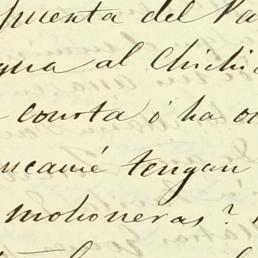 puenta del Pa
gua al Chichi
courta ó ha o
ucamé tengan
mohoneras?